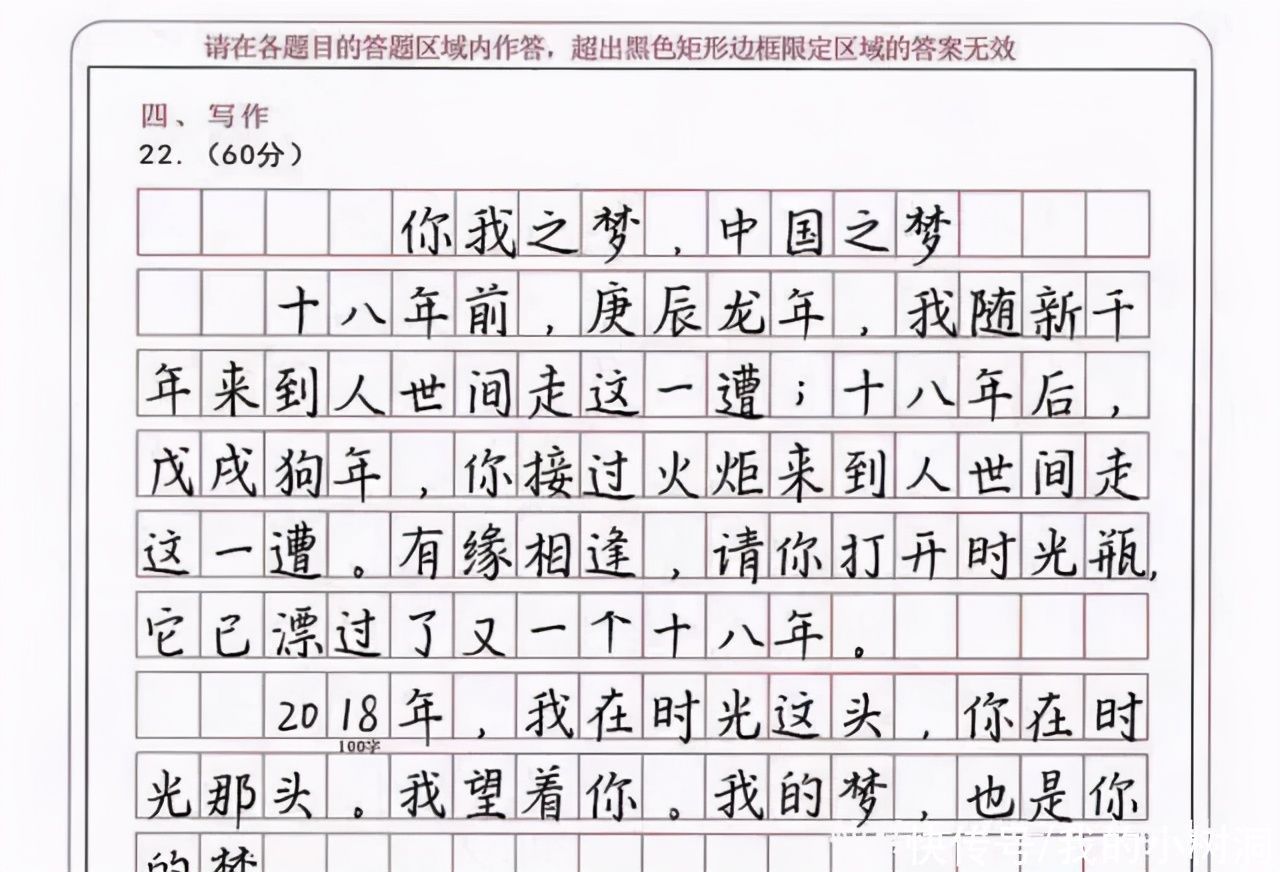 请在各题目的答题区域内作答，超出黑色矩形边框限定区域的答案无效
四、写作
22.（60分）
你我之梦，中国之梦
十八年前，庚辰龙年，我随新千
年来到人世间走这一遭；十八年后，
戊戌狗年，你接过火炬来到人世间走
这一遭。有缘相逢，请你打开时光瓶，
它已漂过了又一个十八年。
2018年，我在时光这头，你在时
100字
光那头。我望着你。我的梦，也是你
的梦
快传号/我的小树洞